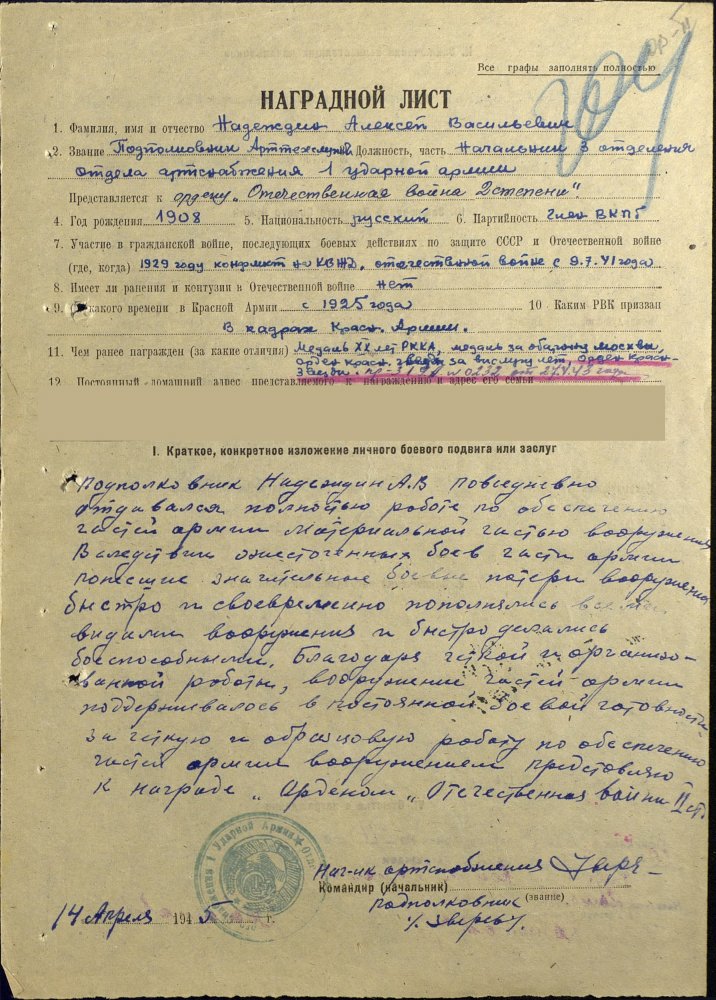 Все графы заполнять полностью
НАГРАДНОЙ ЛИСТ
1. Фамилия, имя и отчество Надеждин Алексей Васильевич
2. Звание Подполковник Арттехслужб Должность, часть Начальник 3 отделения
отдела артснабжения 1 ударной армии
Представляется к ордену „Отечественная война 2 степени".
4. Год рождения 1908 5. Национальность русский 6. Партийность член ВКПб
7. Участие в гражданской войне, последующих боевых действиях по защите СССР и Отечественной войне
(где, когда) 1929 году конфликт на КВЖД, отечественной войне с 9.7.41 года
8. Имеет ли ранения и контузии в Отечественной войне нет
9. С какого времени в Красной Армии с 1925 года 10 Каким РВК призван
В кадрах Красн. Армии.
11. Чем ранее награжден (за какие отличия) Медаль XX лет РККА, медаль за оборону Москвы,
орден Красн. звезды за выслугу лет, орден Красн.
Звезды. пр-з 1 уд А № 0232 от 27.4.43 года
12. Постоянный домашний адрес представляемого к награждению и адрес его семьи
I. Краткое, конкретное изложение личного боевого подвига или заслуг
Подполковник Надеждин А.В повседневно
отдавался полностью работе по обеспечению
частей армии материальной частью вооружения
Вследствии ожесточенных боев части армии
понесшие значительные боевые потери вооружения
быстро и своевременно пополнялись всеми
видами вооружения и быстро делались
боеспособными. Благодаря четкой и организо-
ванной работы, вооружение частей армии
поддерживалось в постоянной боевой готовности
За четкую и образцовую работу по обеспечению
частей армии вооружением представляю
к награде „Орденом „Отечественная война II ст.
Нач-ик артснабжения
Командир (начальник)
подполковник (звание)
/. Зверев /.
14 Апреля 1945 г.
1 Ударной Армии